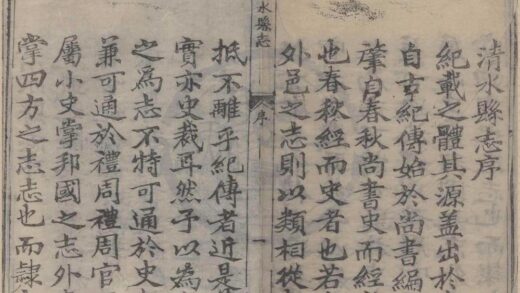 清水縣志序
紀載之體其源盖出於
自古紀傳始於尚書編
肇自春秋尚書史而經
也春秋經而史者也若
外邑之志則以類相從
水縣志
序
一
抵不離乎紀傳者近是
實亦史裁耳然予以為
之為志不特可通於史
兼可通於禮周禮周官
屬小史掌邦國之志外
掌四方之志志也而隸